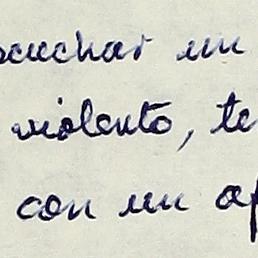 scuchar un
violento, te
con un ap